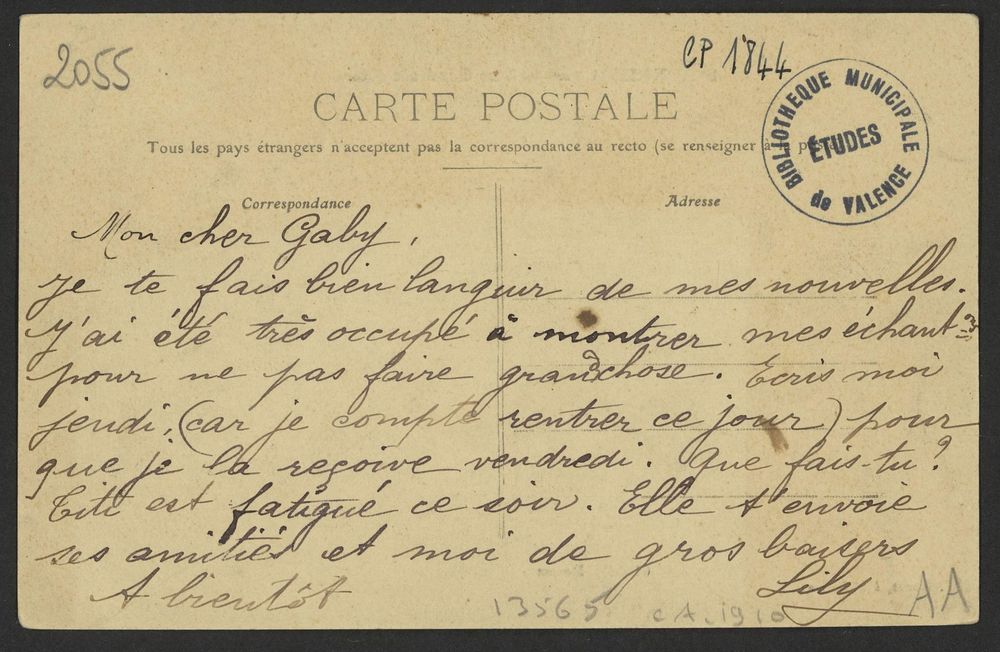 2055
CP 1844
CARTE POSTALE
BIBLIOTHEQUE MUNICIPALE
ÉTUDES
de VALENCE
Tous les pays étrangers n'acceptent pas la correspondance au recto (se renseigner à la poste)
Correspondance
Adresse
Mon cher Gaby,
Je te fais bien languir de mes nouvelles.
J'ai été très occupé à montrer mes échant-ns
pour ne pas faire grand chose. Ecris moi
jeudi, (car je compte rentrer ce jour) pour
que je la reçoive vendredi. Que fais-tu?
Titi est fatigué ce soir. Elle t'envoie
ses amitiés et moi de gros baisers
A bientôt
Lily
13565
CA. 1910
AA